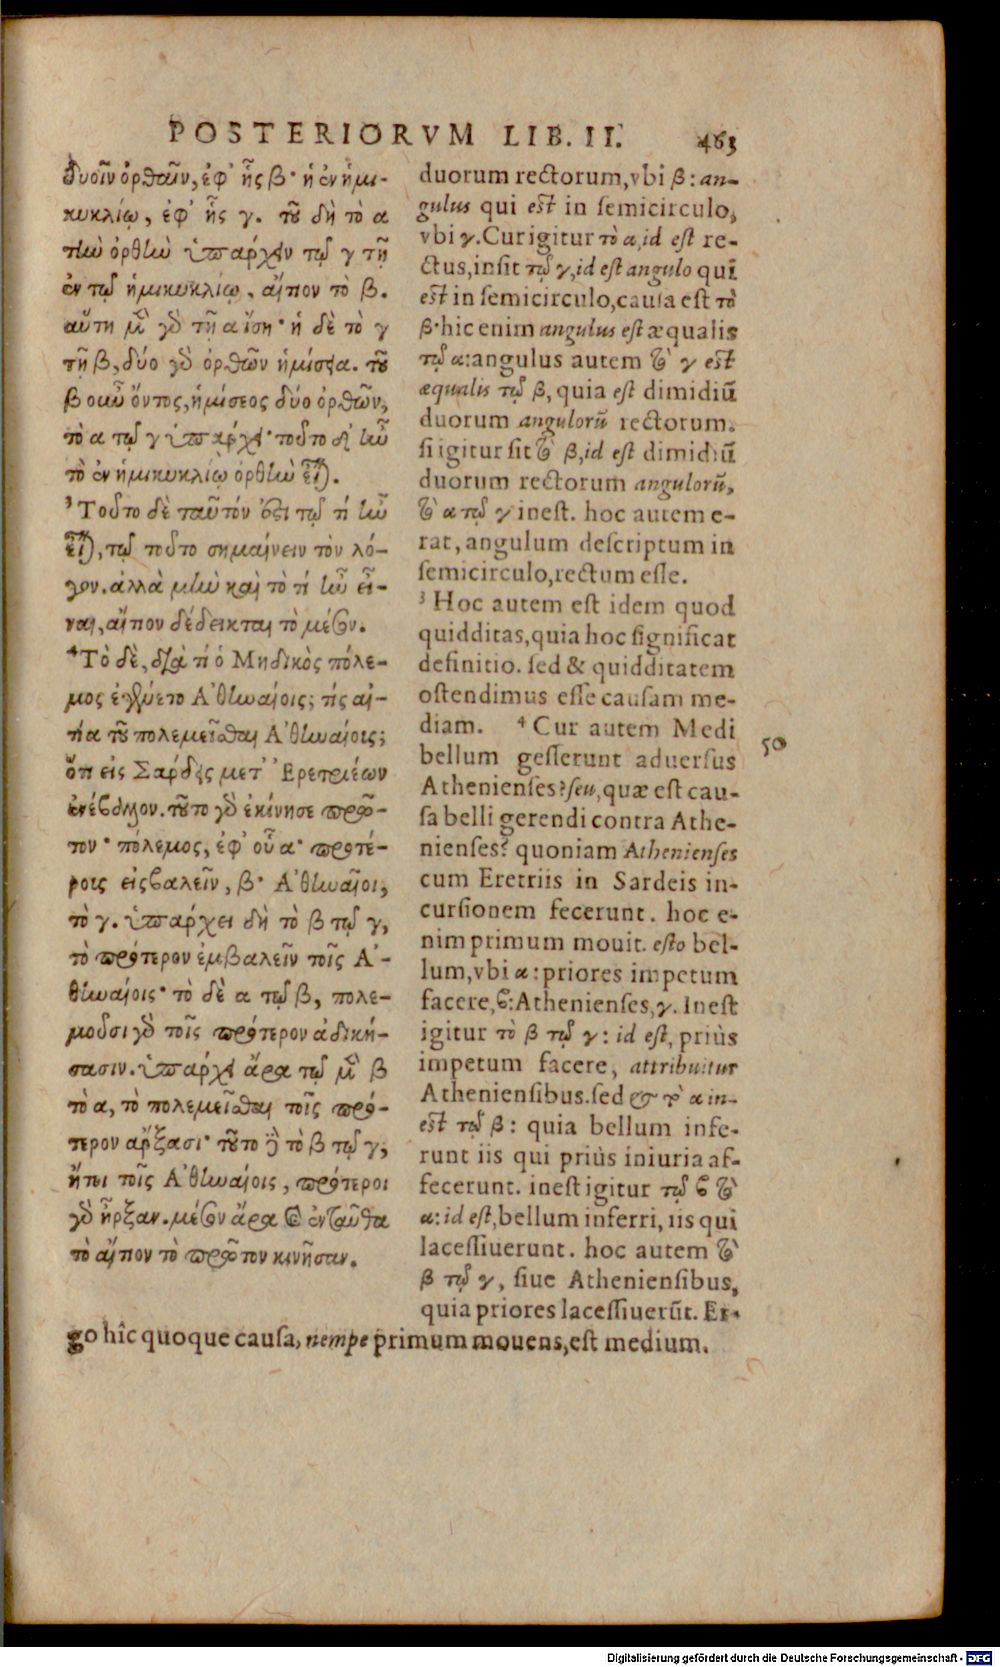 POSTERIORVM LIB. II. 463
δυοῖν ὀρθαῖν, ἐφ' ἧς β· ἡ ἐν ἡμι-
κυκλίῳ, ἐφ' ἧς γ. τοῦ δὴ τὸ α
τὴν ὀρθὴν ὑπάρχειν τῷ γ τῇ
ἐν τῷ ἡμικυκλίῳ, αἴτιον τὸ β.
αὕτη μὲν γὸ τῇ α ἴση· ἡ δὲ τὸ γ
τῇ β, δύο γὸ ὀρθῶν ἡμίσεια. τοῦ
β οὖν ὄντος, ἡμίσεος δύο ὀρθῶν,
τὸ α τῷ γ ὑπάρχει· τοῦτο δ' ἦν
τὸ ἐν ἡμικυκλίῳ ὀρθὴν εἶναι.
³ Τοῦτο δὲ ταὐτόν ὅτι τῷ τί ἦν
εἶναι, τῷ τοῦτο σημαίνειν τὸν λό-
γον. ἀλλὰ μὴν καὶ τὸ τί ἦν εἶ-
ναι, αἴτιον δέδεικται τὸ μέσον.
⁴ Τὸ δὲ, διὰ τί ὁ Μηδικὸς πόλε-
μος ἐγένετο Ἀθηναίοις; τίς αἰ-
τία τοῦ πολεμεῖσθαι Ἀθηναίους;
ὅτι εἰς Σάρδεις μετ' Ἐρετριέων
ἐνέβαλον. τοῦτο γὸ ἐκίνησε πρῶ-
τον· πόλεμος, ἐφ' οὗ α· προτέ-
ροις εἰσβαλεῖν, β· Ἀθηναῖοι,
τὸ γ. ὑπάρχει δὴ τὸ β τῷ γ,
τὸ πρότερον ἐμβαλεῖν τοῖς Ἀ-
θηναίοις· τὸ δὲ α τῷ β, πολε-
μοῦσι γὸ τοῖς πρότερον ἀδική-
σασιν. ὑπάρχει ἄρα τῷ μὲν β
τὸ α, τὸ πολεμεῖσθαι τοῖς πρό-
τερον ἄρξασι· τοῦτο δὲ τὸ β τῷ γ,
ἤτοι τοῖς Ἀθηναίοις, πρότεροι
γὸ ἦρξαν. μέσον ἄρα καὶ ἐνταῦθα
τὸ αἴτιον τὸ πρῶτον κινῆσαν.
duorum rectorum, vbi β: an-
gulus qui est in semicirculo,
vbi γ. Cur igitur τὸ α, id est re-
ctus, insit τῷ γ, id est angulo qui
est in semicirculo, causa est τὸ
β· hic enim angulus est æqualis
τῷ α: angulus autem τὸ γ est
æqualis τῷ β, quia est dimidiũ
duorum angulorũ rectorum.
si igitur sit τὸ β, id est dimidiũ
duorum rectorum angulorũ,
τὸ α τῷ γ inest. hoc autem e-
rat, angulum descriptum in
semicirculo, rectum esse.
³ Hoc autem est idem quod
quidditas, quia hoc significat
definitio. sed & quidditatem
ostendimus esse causam me-
diam. ⁴ Cur autem Medi
bellum gesserunt aduersus
Athenienses? seu, quæ est cau-
sa belli gerendi contra Athe-
nienses? quoniam Athenienses
cum Eretriis in Sardeis in-
cursionem fecerunt. hoc e-
nim primum mouit. esto bel-
lum, vbi α: priores impetum
facere, ϐ: Athenienses, γ. Inest
igitur τὸ β τῷ γ: id est, priùs
impetum facere, attribuitur
Atheniensibus. sed & τὸ α in-
est τῷ β: quia bellum infe-
runt iis qui priùs iniuria af-
fecerunt. inest igitur τῷ ϐ τὸ
α: id est, bellum inferri, iis qui
lacessiuerunt. hoc autem τὸ
β τῷ γ, siue Atheniensibus,
quia priores lacessiuerũt. Er-
go hîc quoque causa, nempe primum mouens, est medium.
50
Digitalisierung gefördert durch die Deutsche Forschungsgemeinschaft - DFG